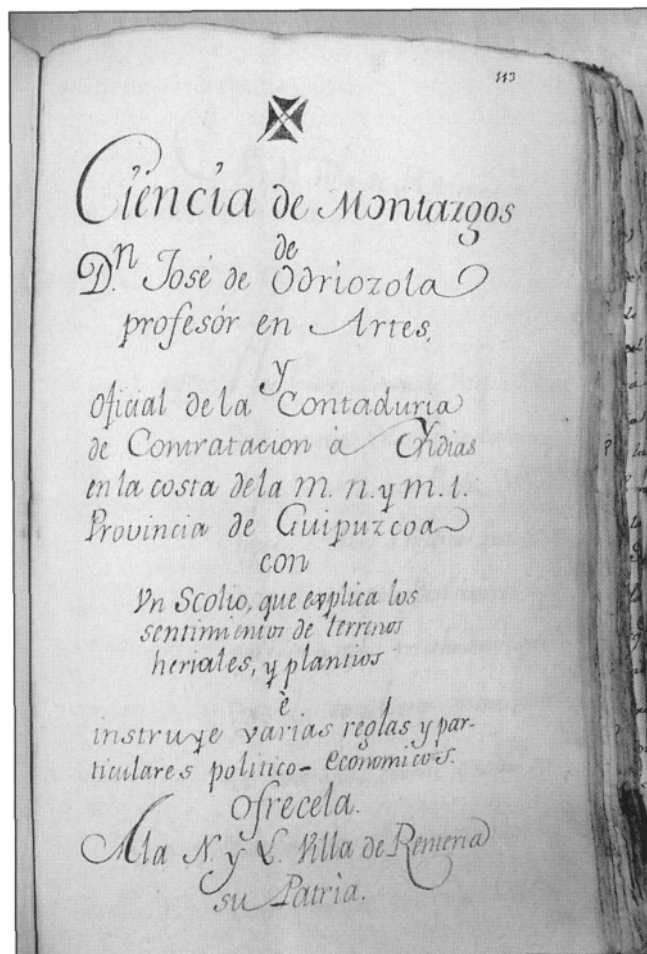 113
Ciencia de Montazgos
de
D.n José de Odriozola
profesór en Artes,
y
Oficial de la Contaduria
de Contratacion à Yndias
en la costa dela M. N. y M. L.
Provincia de Guipuzcoa
con
Vn Scolio, que explica los
sentimientos de terrenos
heriales, y plantios
è
instruye varias reglas y par-
ticulares politico-economicos.
Ofrecela.
Ala N. y L. Villa de Renteria
su Patria.